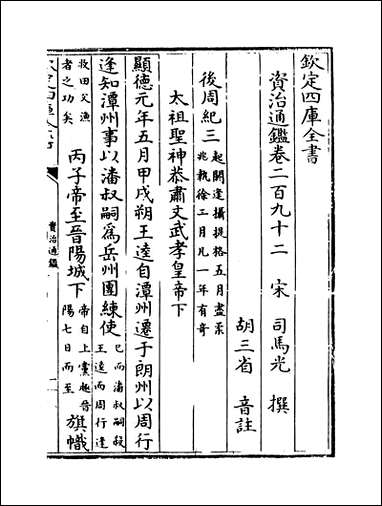 欽定四庫全書
資治通鑑卷二百九十二
宋 司馬光 撰
胡三省 音註
後周紀三 起閼逢攝提格五月盡柔兆執徐二月凡一年有奇
太祖聖神恭肅文武孝皇帝下
顯德元年五月甲戌朔王逵自潭州遷于朗州以周行
逢知潭州事以潘叔嗣為岳州團練使 已而潘叔嗣殺王逵而周行逢
救田父漁者之功矣 丙子帝至晉陽城下 帝自上黨趣晉陽七日而至 旗幟
資治通鑑